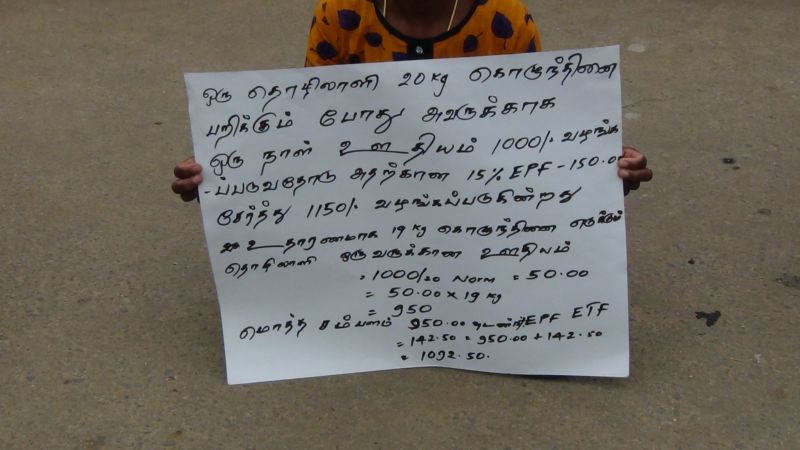 ஒரு தொழிலாளி 20 Kg கொழுந்தினை
பறிக்கும் போது அவருக்காக
ஒரு நாள் ஊதியம் 1000/- வழங்க
-ப்படுவதோடு அதற்கான 15% EPF - 150.00
சேர்த்து 1150/- வழங்கப்படுகின்றது
உதாரணமாக 19 Kg கொழுந்தினை எடுக்கும்
தொழிலாளி ஒருவருக்கான ஊதியம்
= 1000/20 Norm = 50.00
= 50.00 x 19 Kg
= 950
மொத்த சம்பளம் 950.00 EPF ETF
= 142.50 = 950.00 + 142.50
= 1092.50.